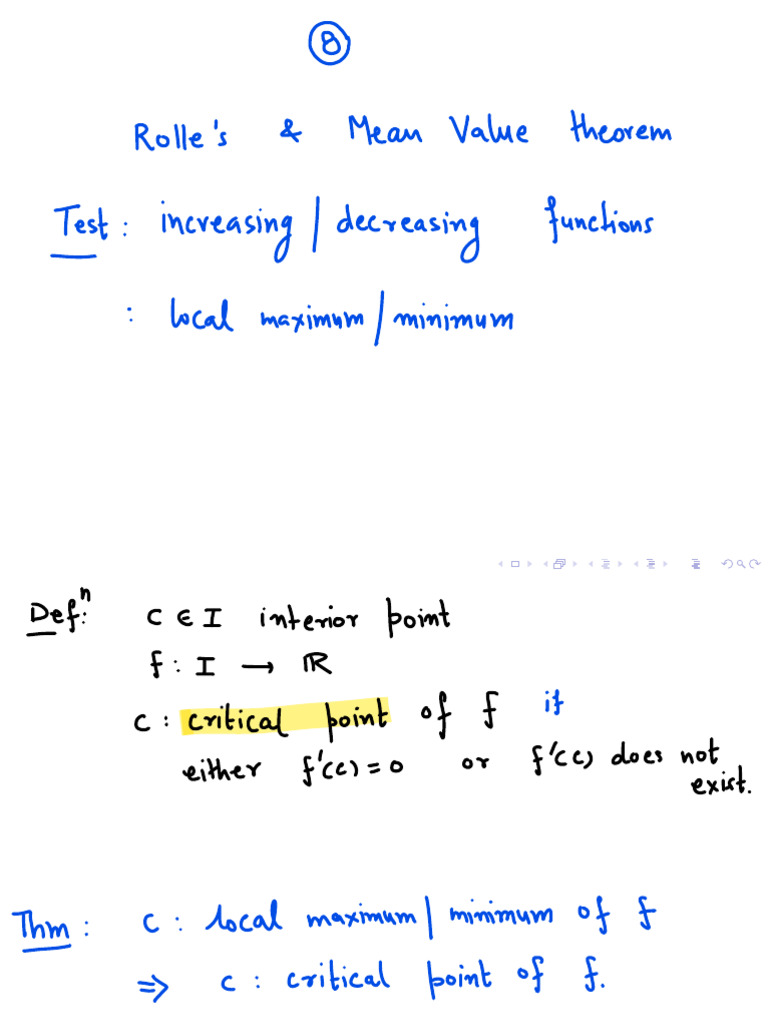 8
Rolle's & Mean Value theorem
Test: increasing/decreasing functions
: local maximum/minimum
Defⁿ: c ∈ I interior point
f : I → ℝ
c : critical point of f if
either f'(c) = 0 or f'(c) does not
exist.
Thm: c : local maximum/minimum of f
⇒ c : critical point of f.